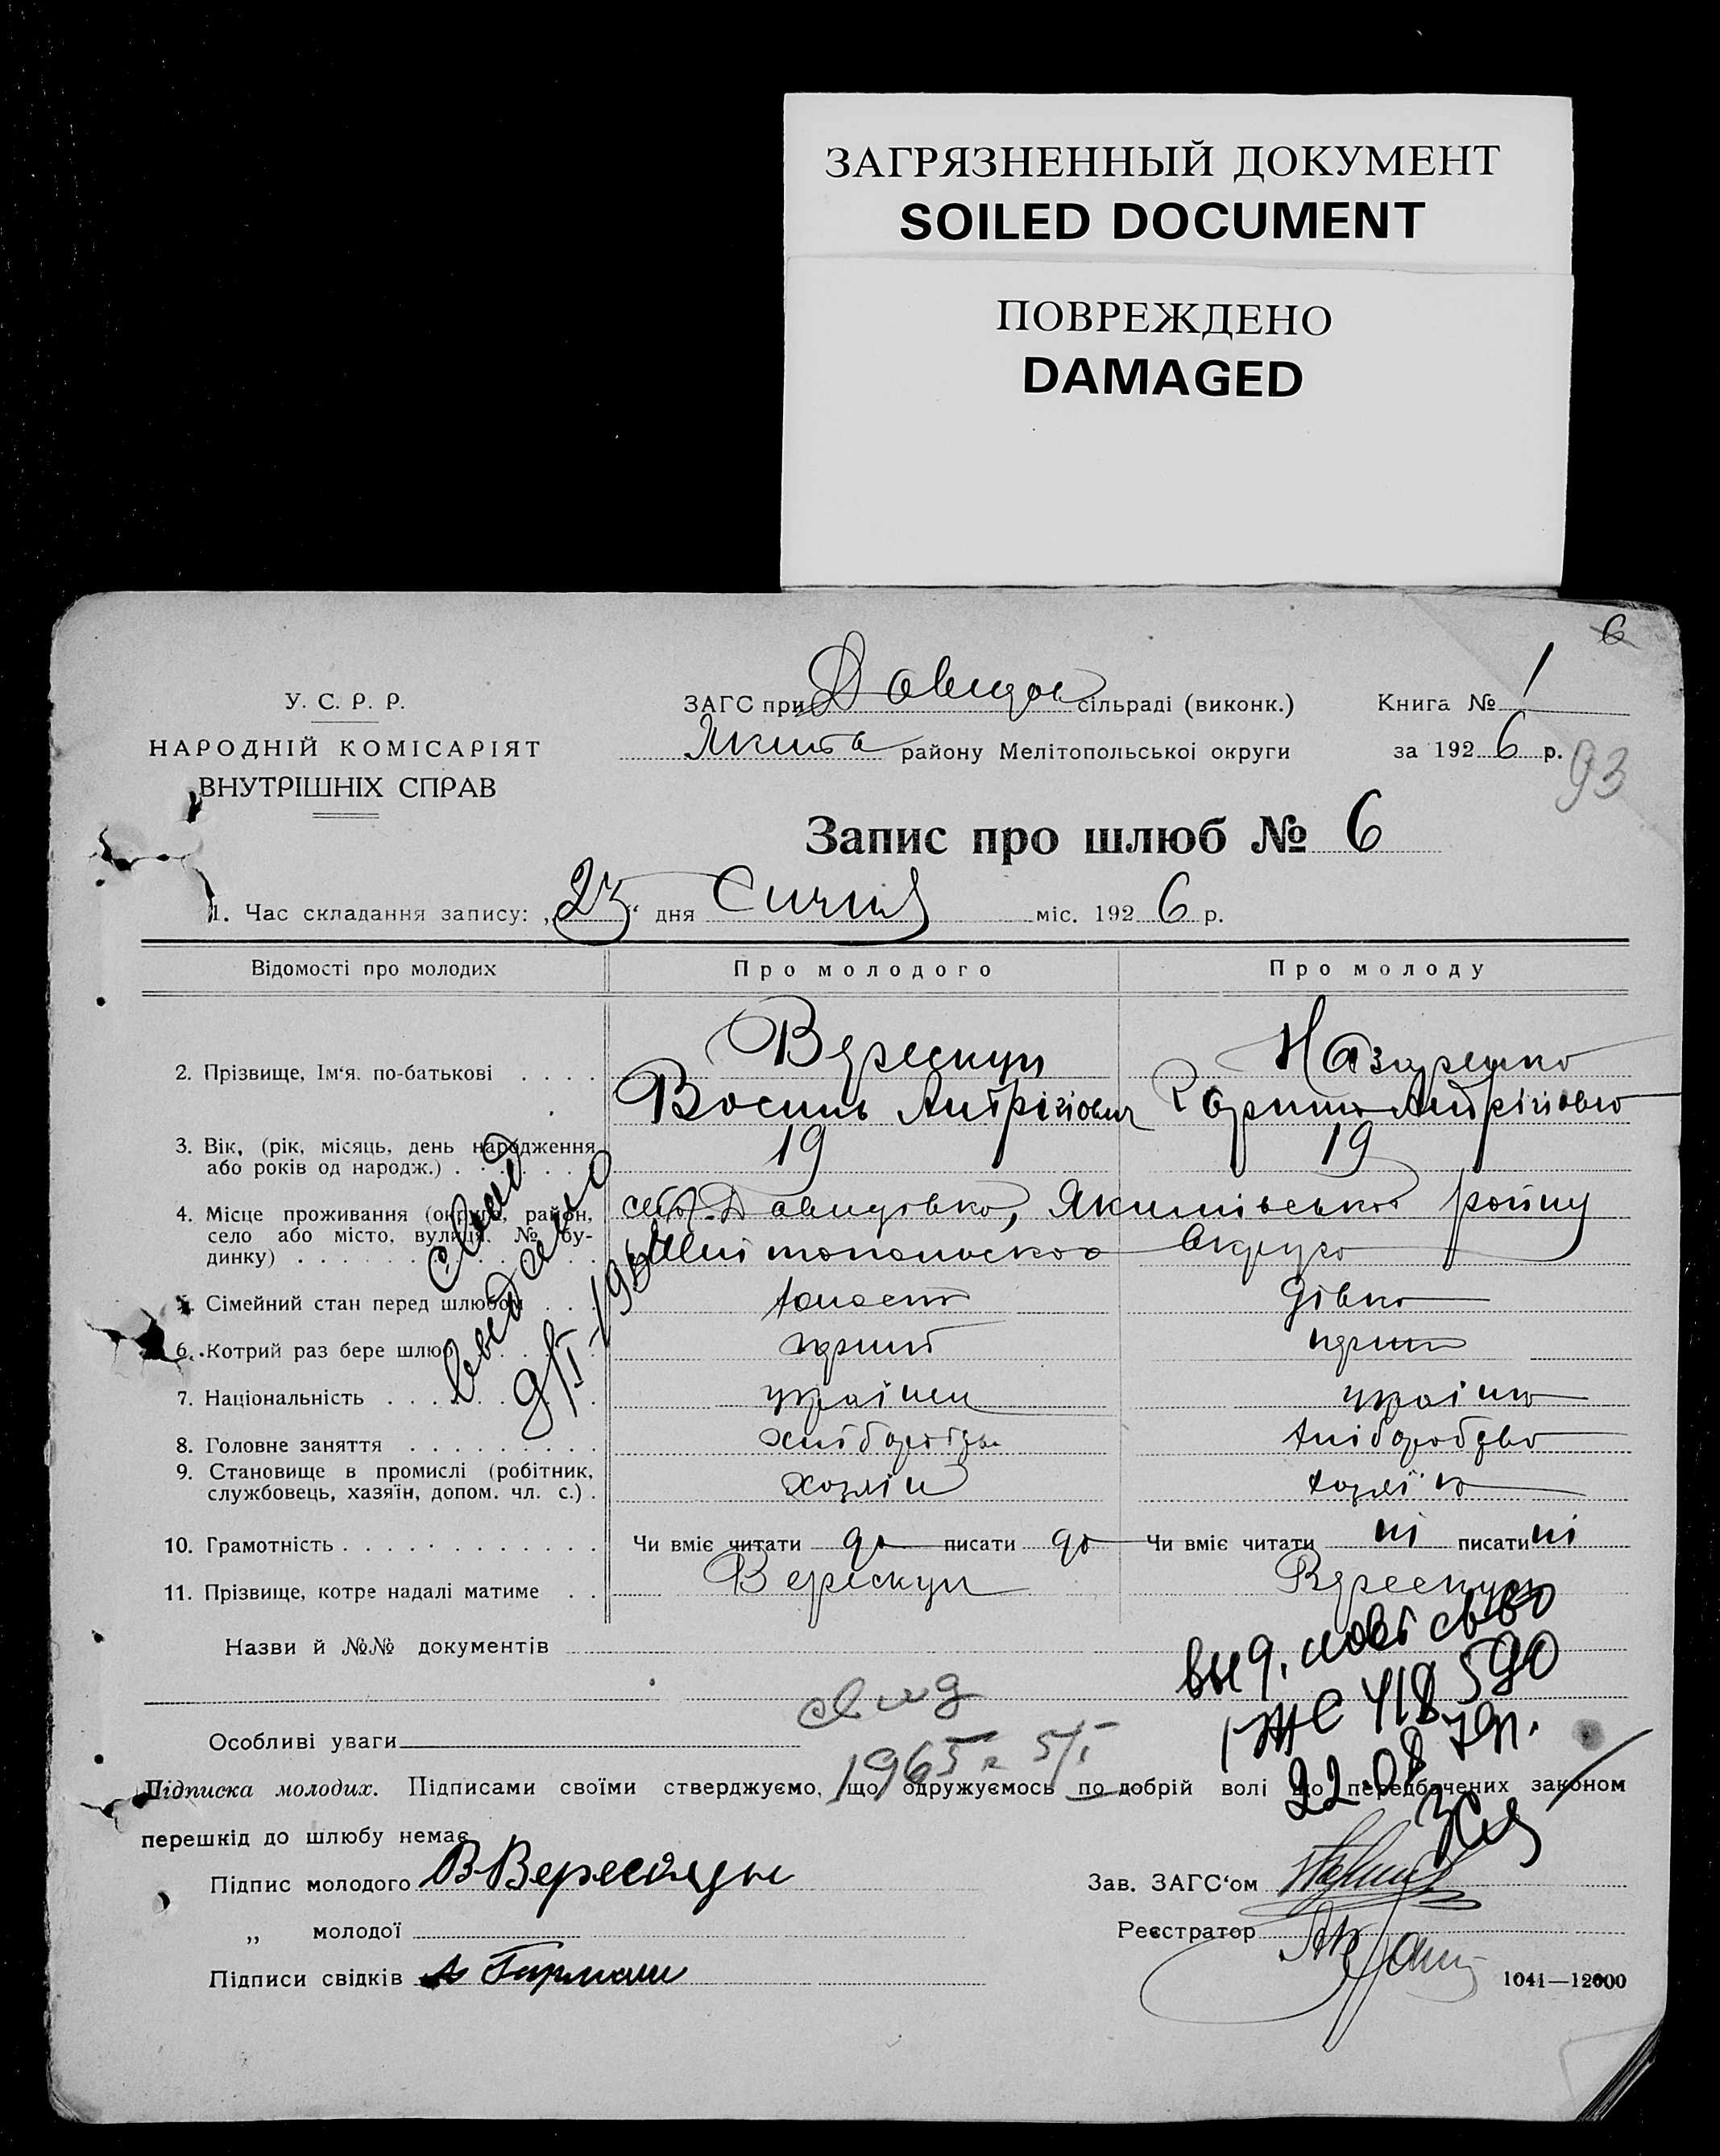 ЗАГРЯЗНЕННЫЙ ДОКУМЕНТ
SOILED DOCUMENT
ПОВРЕЖДЕНО
DAMAGED
6
У. С. Р. Р.
НАРОДНІЙ КОМІСАРІЯТ
ВНУТРІШНІХ СПРАВ
ЗАГС при Давидов сільраді (виконк.)
Якимів району Мелітопольської округи
Книга № 1
за 1926 р.
93
Запис про шлюб № 6
1. Час складання запису: „23“ дня Січня міс. 1926 р.
Відомості про молодих Про молодого Про молоду
2. Прізвище, Ім‘я. по-батькові Верескун Назаренко
Василь Андрієвич Андрієвна
3. Вік, (рік, місяць, день народження або років од народж.) 19 19
4. Місце проживання (округа, район, село або місто, вулиця. № будинку) Давидовка, Якимівського району
Мелітопольсько Округи
5. Сімейний стан перед шлюбом дівка
6. Котрий раз бере шлюб перший перший
7. Національність українец українка
8. Головне заняття хліборобство
9. Становище в промислі (робітник, службовець, хазяїн, допом. чл. с.) хозяін хозяїка
10. Грамотність Чи вміє читати да писати да Чи вміє читати ні писати ні
11. Прізвище, котре надалі матиме Верескун Верескун
Назви й №№ документів
выд. повт св-во
I ЖС 418590
22-08 79г.
свид
выдано
9/I-195
Особливі уваги
свид
1965г 5/I
Підписка молодих. Підписами своїми стверджуємо, що одружуємось по добрій волі що передбачених законом
перешкід до шлюбу немає
Підпис молодого В Верескун
„ молодої
Підписи свідків
Зав. ЗАГС‘ом
Реєстратор
1041—12000